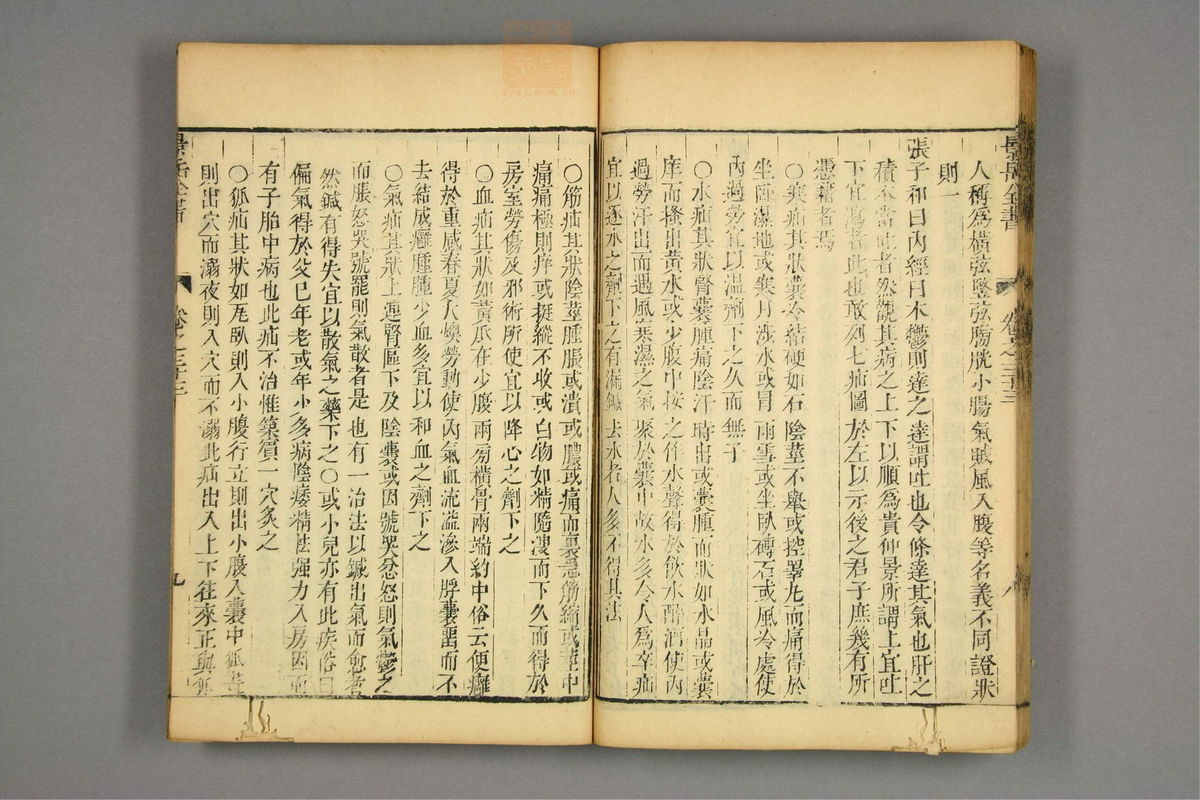 景岳全書
卷之三十三
八
人稱為橫弦豎弦膀胱小腸氣賊風入腹等名義不同證狀
則一
張子和曰內經曰木鬱則達之達謂吐也令條達其氣也肝之
積本當吐者然觀其病之上下以順為貴仲景所謂上宜吐
下宜瀉者此也敢列七疝圖於左以示後之君子庶幾有所
憑藉者焉
○寒疝其狀囊冷結硬如石陰莖不舉或控睪丸而痛得於
坐臥濕地或寒月涉水或冒雨雪或坐臥磚石或風冷處使
內過勞宜以溫劑下之久而無子
○水疝其狀腎囊腫痛陰汗時出或囊腫而狀如水晶或囊
痒而搔出黃水或少腹中按之作水聲得於飲水醉酒使內
過勞汗出而遇風寒濕之氣聚於囊中故水多令人為卒疝
宜以逐水之劑下之有漏鍼去水者人多不得其法
○筋疝其狀陰莖腫脹或潰或膿或痛而裏急筋縮或莖中
痛痛極則痒或挺縱不收或白物如精隨溲而下久而得於
房室勞傷及邪術所使宜以降心之劑下之
○血疝其狀如黃瓜在少腹兩旁橫骨兩端約中俗云便癰
得於重感春夏大燠勞動使內氣血流溢滲入脬囊畱而不
去結成癰腫腫少血多宜以和血之劑下之
○氣疝其狀上連腎區下及陰囊或因號哭忿怒則氣鬱之
而脹怒哭號罷則氣散者是也有一治法以鍼出氣而愈者
然鍼有得失宜以散氣之藥下之○或小兒亦有此疾俗曰
偏氣得於父已年老或年少多病陰痿精怯強力入房因而
有子胎中病也此疝不治惟築賓一穴灸之
○狐疝其狀如瓦臥則入小腹行立則出小腹入囊中狐晝
則出穴而溺夜則入穴而不溺此疝出入上下往來正與狐
景岳全書
卷之三十三
九